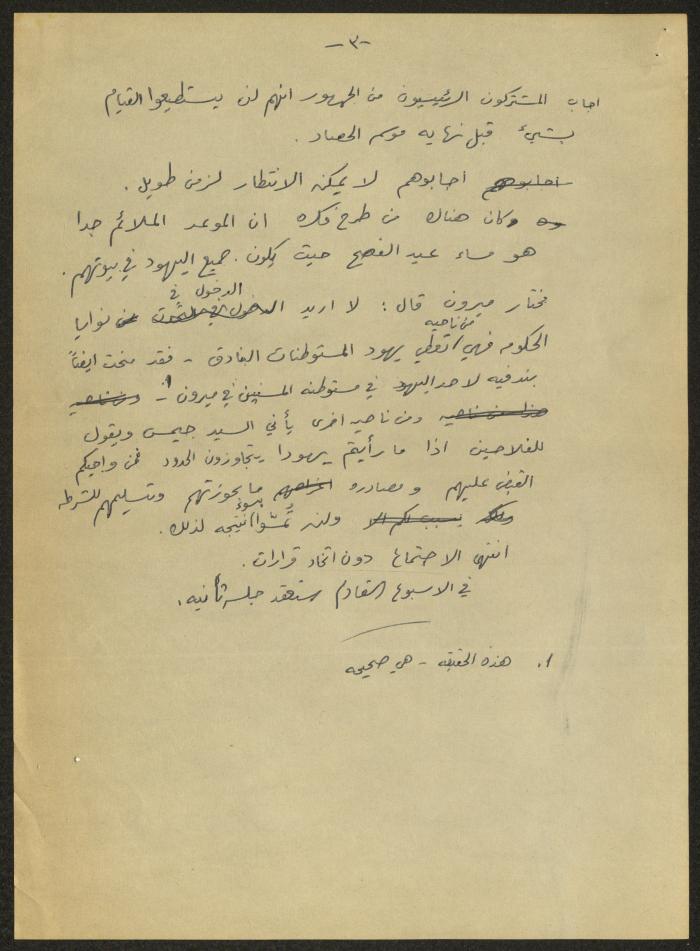 -٣-
اجاب المشتركون الرئيسيون من الجمهور انهم لن يستطيعوا القيام
بشيء قبل نهايه موسم الحصاد .
اجابوهم اجابوهم لا يمكن الانتظار لزمن طويل .
وكان هناك من طرح فكره ان الموعد الملائم جدا
هو مساء عيد الفصح حيث يكون جميع اليهود في بيوتهم .
الدخول في
مختار ميرون قال : لا اريد نوايا
من ناحيه
الحكومه فهي تعطي يهود المستوطنات البنادق - فقد منحت ايضاً
بندقيه لاحد اليهود في مستوطنه المسنين في ميرون ١ -
هذا من ناحيه ومن ناحيه اخرى يأتي السيد جيمس ويقول
للفلاحين اذا ما رأيتم يهودا يتجاوزون الحدود فمن واجبكم
القبض عليهم ومصادره ما بحوزتهم وتسليمهم للشرطه
بسوء
ولن تمسّوا نتيجه لذلك .
انتهى الاجتماع دون اتخاذ قرارات .
في الاسبوع القادم ستعقد جلسه ثانيه .
١. هذه الحقيقه - هي صحيحه